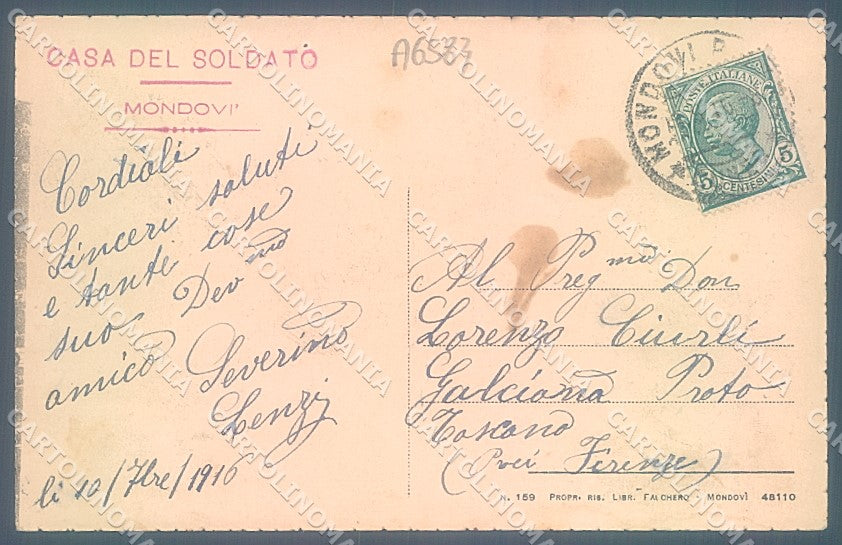 CASA DEL SOLDATO
MONDOVI'
A6534
Cordiali
Sinceri saluti
e tante cose
suo Dev mo
amico Severino
Lenzi
li 10/7bre/1916
MONDOVI
POSTE ITALIANE
5 CENTESIMI 5
Al Preg mo Don
Lorenzo Ciurli
Galciana Prato
Toscano
(Firenze)
N. 159 PROPR. RIS. LIBR. FALCHERO MONDOVÌ 48110
CARTOLINOMANIA